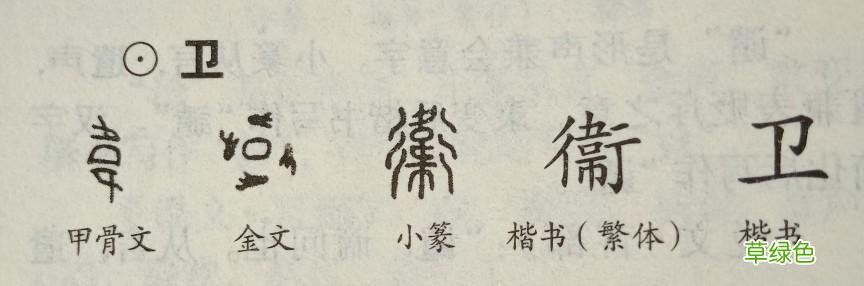 ⊙ 卫
衛 卫
甲骨文 金文 小篆 楷书(繁体) 楷书
草绿色